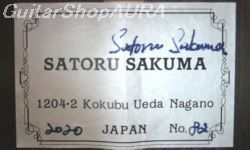 GuitarShopAURA
Satoru Sakuma
SATORU SAKUMA
1204-2 Kokubu Ueda Nagano
2020 JAPAN No.